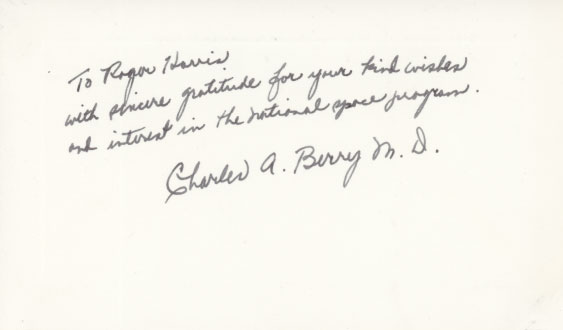 To Roger Harris
with sincere gratitude for your kind wishes
and interest in the national space program.
Charles A. Berry M.D.